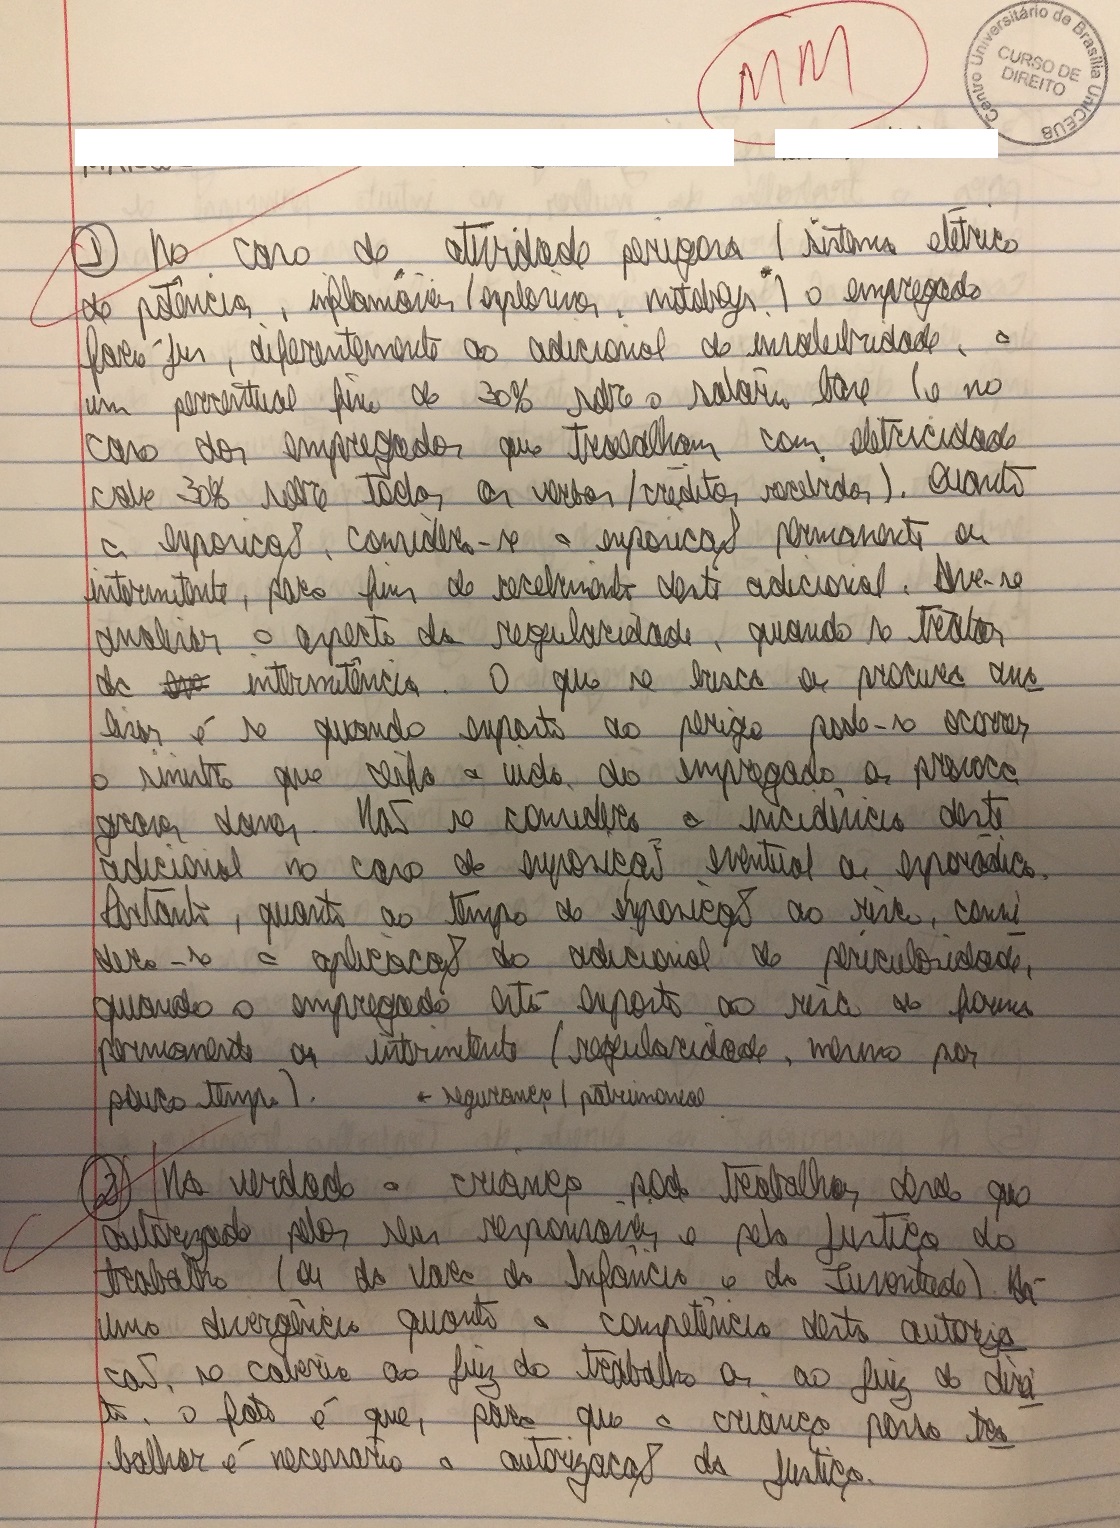 MM
Centro Universitário de Brasília UniCEUB
CURSO DE
DIREITO
1) No caso de atividade perigosa (sistema elétrico
de potência, inflamáveis/explosivos, *) o empregado
fará jus, diferentemente ao adicional de insalubridade, a
um percentual fixo de 30% sobre o salário base (e no
caso dos empregados que trabalham com eletricidade
cabe 30% sobre todas as verbas/créditos recebidos). Quanto
a exposição, considera-se a exposição permanente ou
intermitente, para fins de recebimento deste adicional. Deve-se
analisar o aspecto da regularidade, quando se tratar
de intermitência. O que se busca ou procura ana
lisar é se quando exposto ao perigo pode-se ocorrer
o sinistro que ceifa a vida do empregado ou provoca
graves danos. Não se considera a incidência deste
adicional no caso de exposição eventual ou esporádica.
Portanto, quanto ao tempo de exposição ao risco, consi
dera-se a aplicação do adicional de periculosidade,
quando o empregado está exposto ao risco de forma
permanente ou intermitente (regularidade, mesmo por
pouco tempo).
* segurança/patrimonial
2) Na verdade a criança pode trabalhar, desde que
autorizado pelos seus responsáveis e pela Justiça do
trabalho (ou da Vara da Infância e da Juventude). Há
uma divergência quanto a competência desta autoriza
ção, se caberia ao juiz do trabalho ou ao juiz de direi
to. o fato é que, para que a criança possa tra
balhar é necessário a autorização da Justiça.